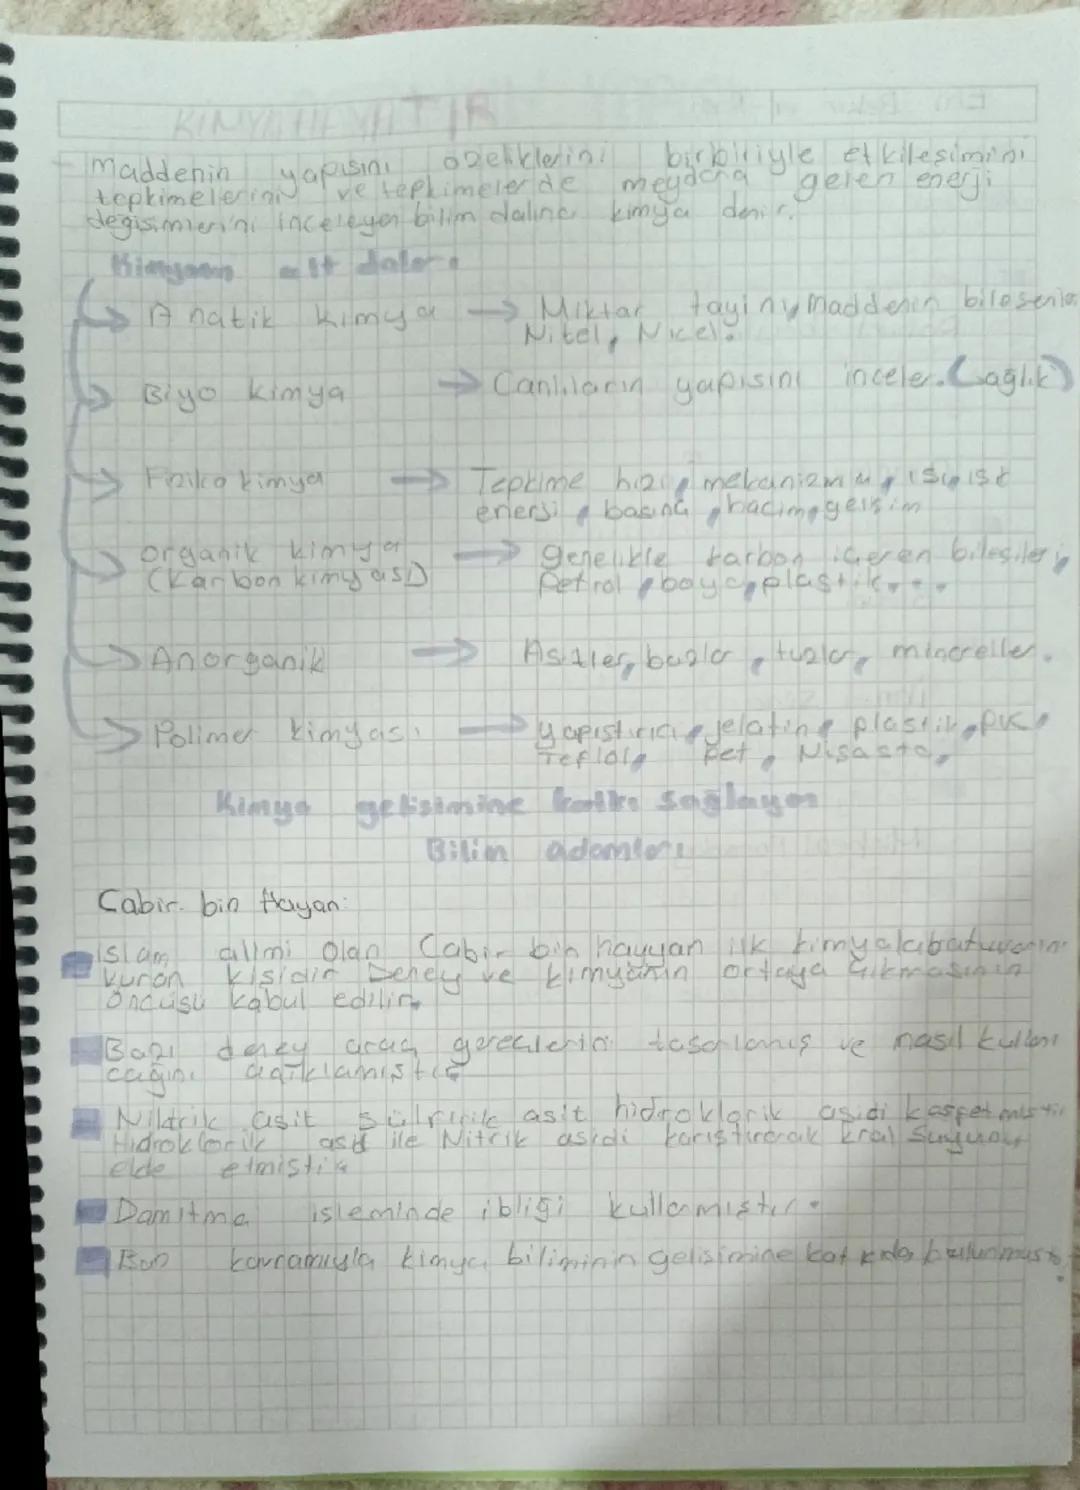 KİMYA HAYATTIR
Maddenin yapısını özeliklerini birbiriyle etkileşimini
tepkimelerini ve tepkimelerde meydana gelen enerji
değişimlerini inceleyen bilim dalına kimya denir.
Kimyanın alt dalları
Analitik kimya → Miktar tayini, Maddenin
Nitel, Nicel.
Biyo kimya → Canlıların yapısını inceler. (sağlık)
Fiziko kimya → Tepkime hızı, mekanizma, ısı, iş
enerji, basınç, hacim, gerişim
organik kimya → genelikle karbon içeren bileşiler,
(Karbon kimyası) Petrol, boya, plastik...
Anorganik → Asitler, bazlar, tuzlar, mineraller.
Polimer kimyası → yapıştırıcı, jelatin, plastik,
Teflo, Pet, Nişasta,
Kimya gelişimine katkı sağlayan
Bilim adamları
Cabir bin Hayan:
islam alimi olan Cabir bin hayyan ilk kimya
kuran kişidir Deney ve kimyanın ortaya çıkmasının
öncüsü kabul edilir.
Bazı deney araç gereçlerini tasarlamış ve nasıl kullanı
cağını açıklamıştır
Nitrik asit sülfirik asit hidroklorik asidi keşfetmiştir
Hidroklorik asit ile Nitrik asidi karıştırarak kral suyunu
elde etmiştir
Damıtma işleminde ibliği kullanmıştır.
Baz kavramıyla kimya biliminin gelişimine katkıda bulunmuştu.